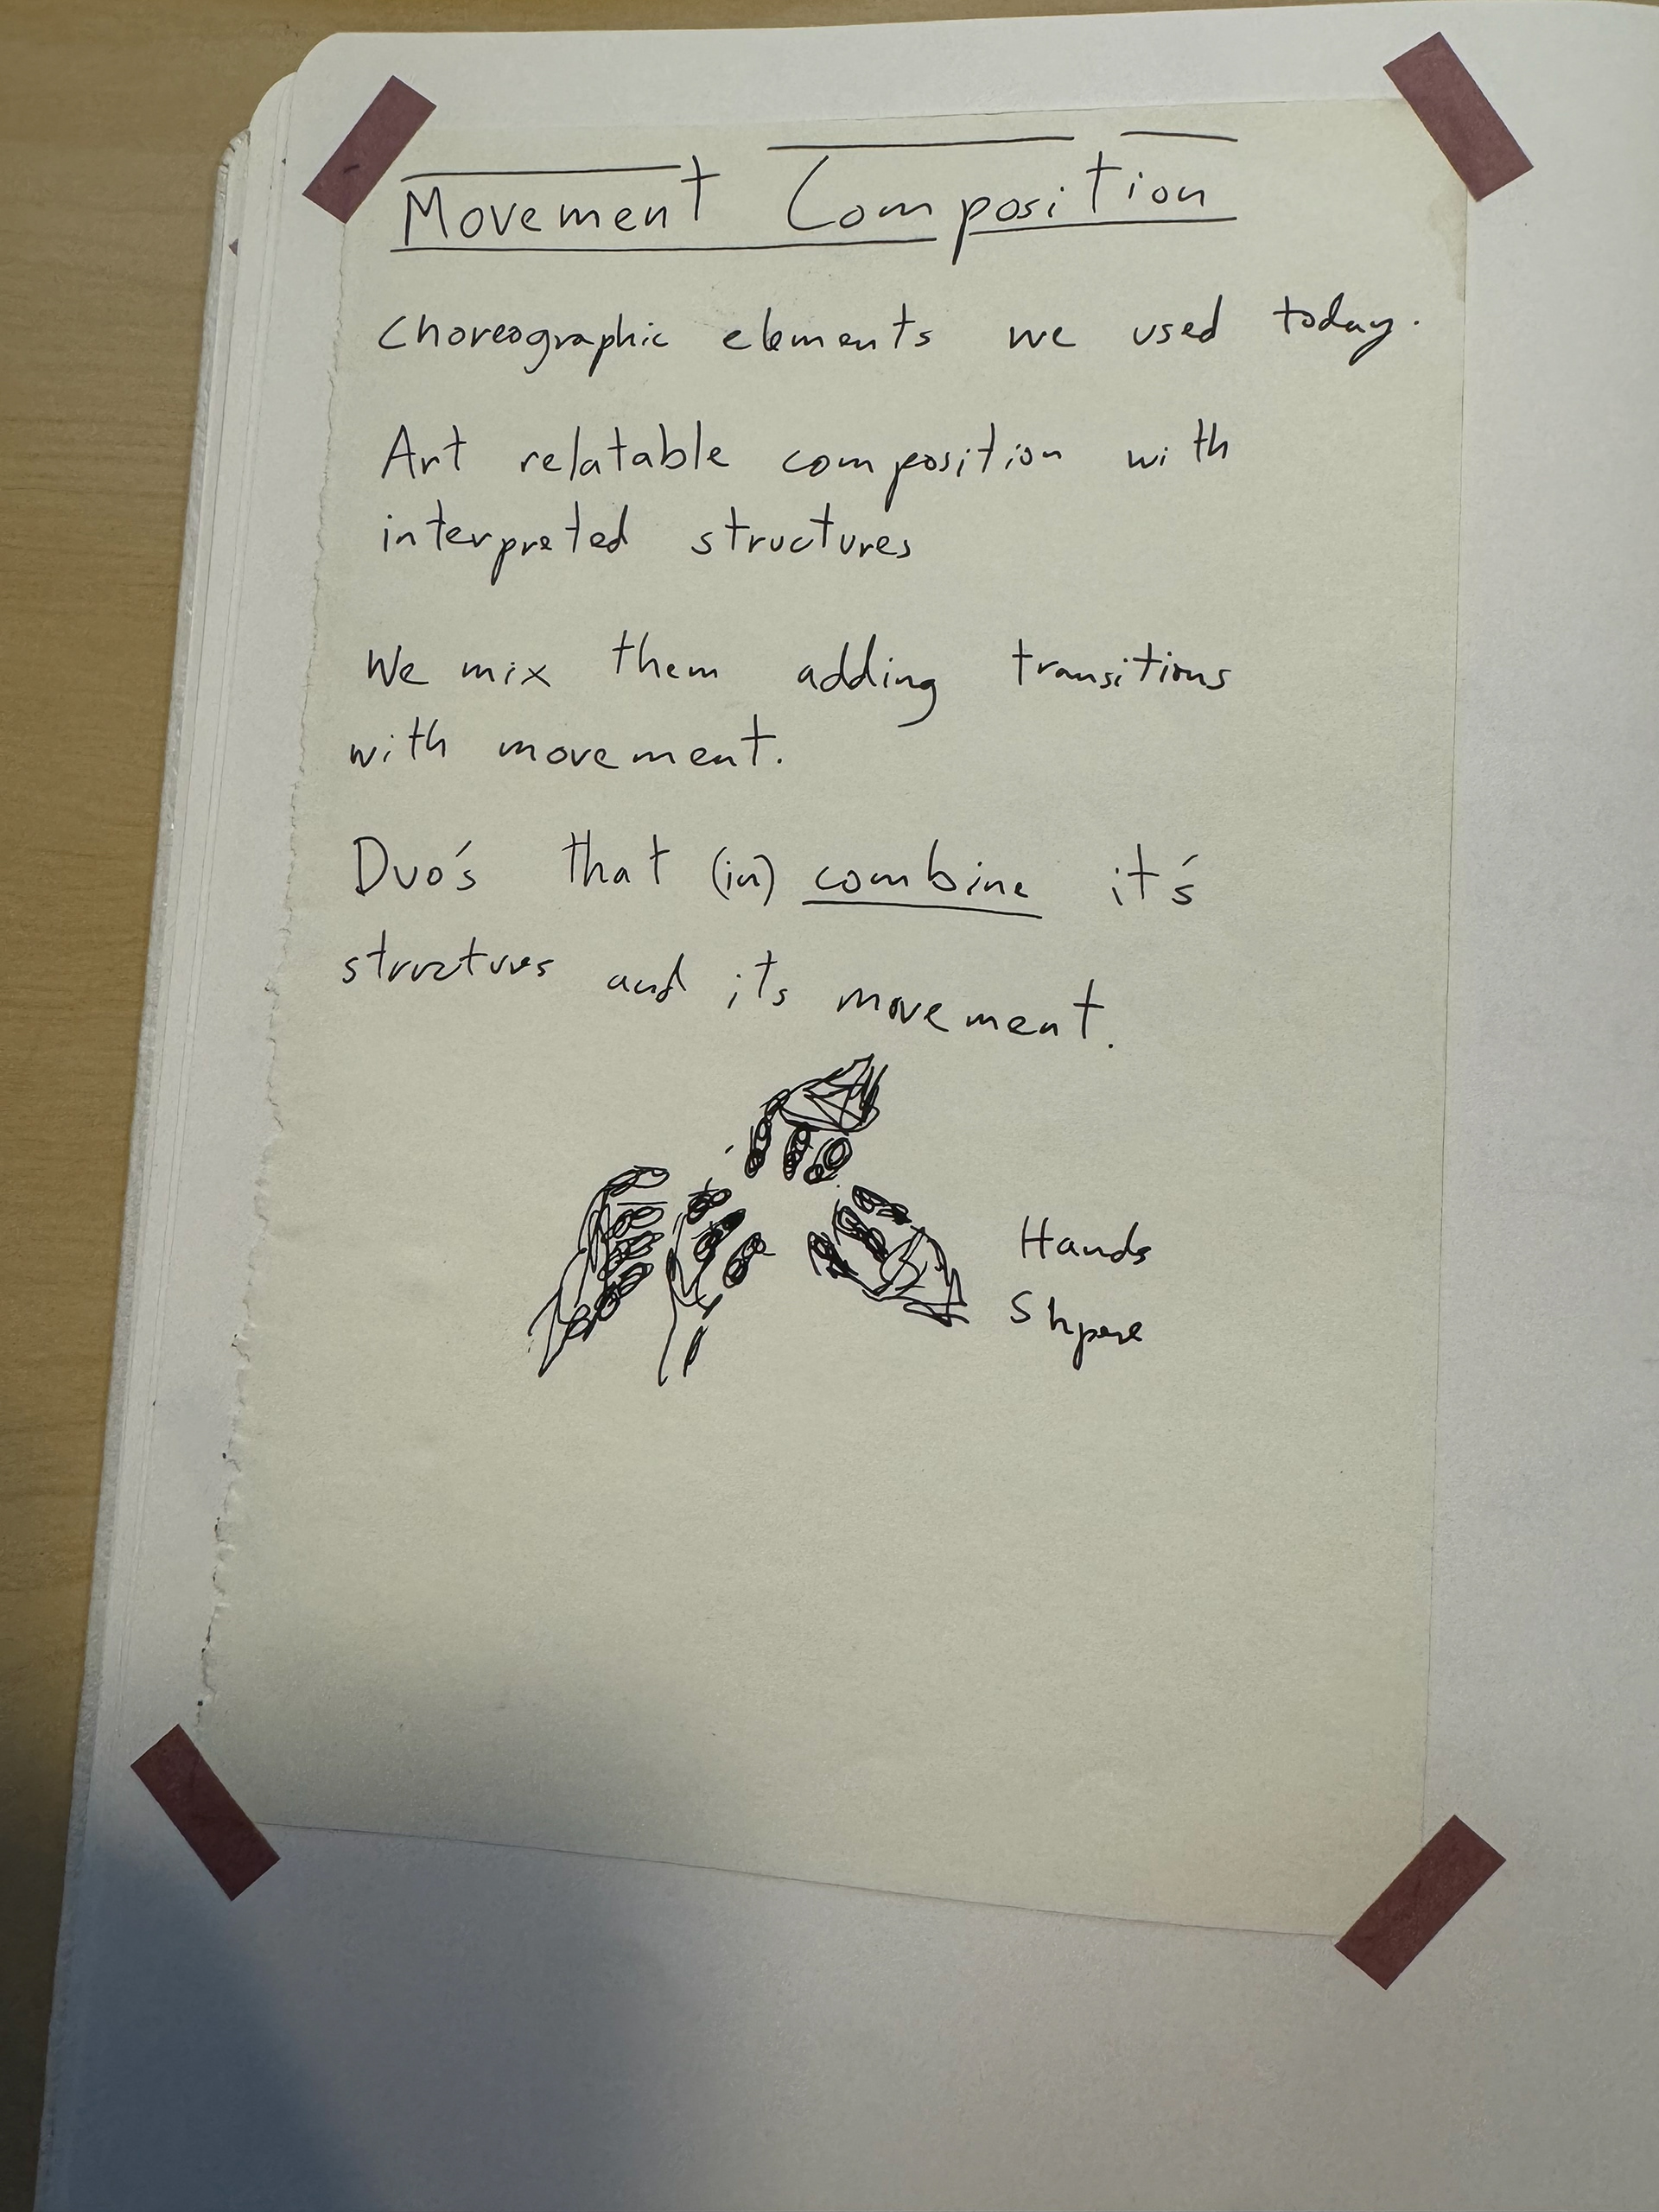 Movement Composition
Choreographic elements we used today.
Art relatable composition with
interpreted structures
We mix them adding transitions
with movement.
Duo's that (in) combine it's
structures and its movement.
Hands